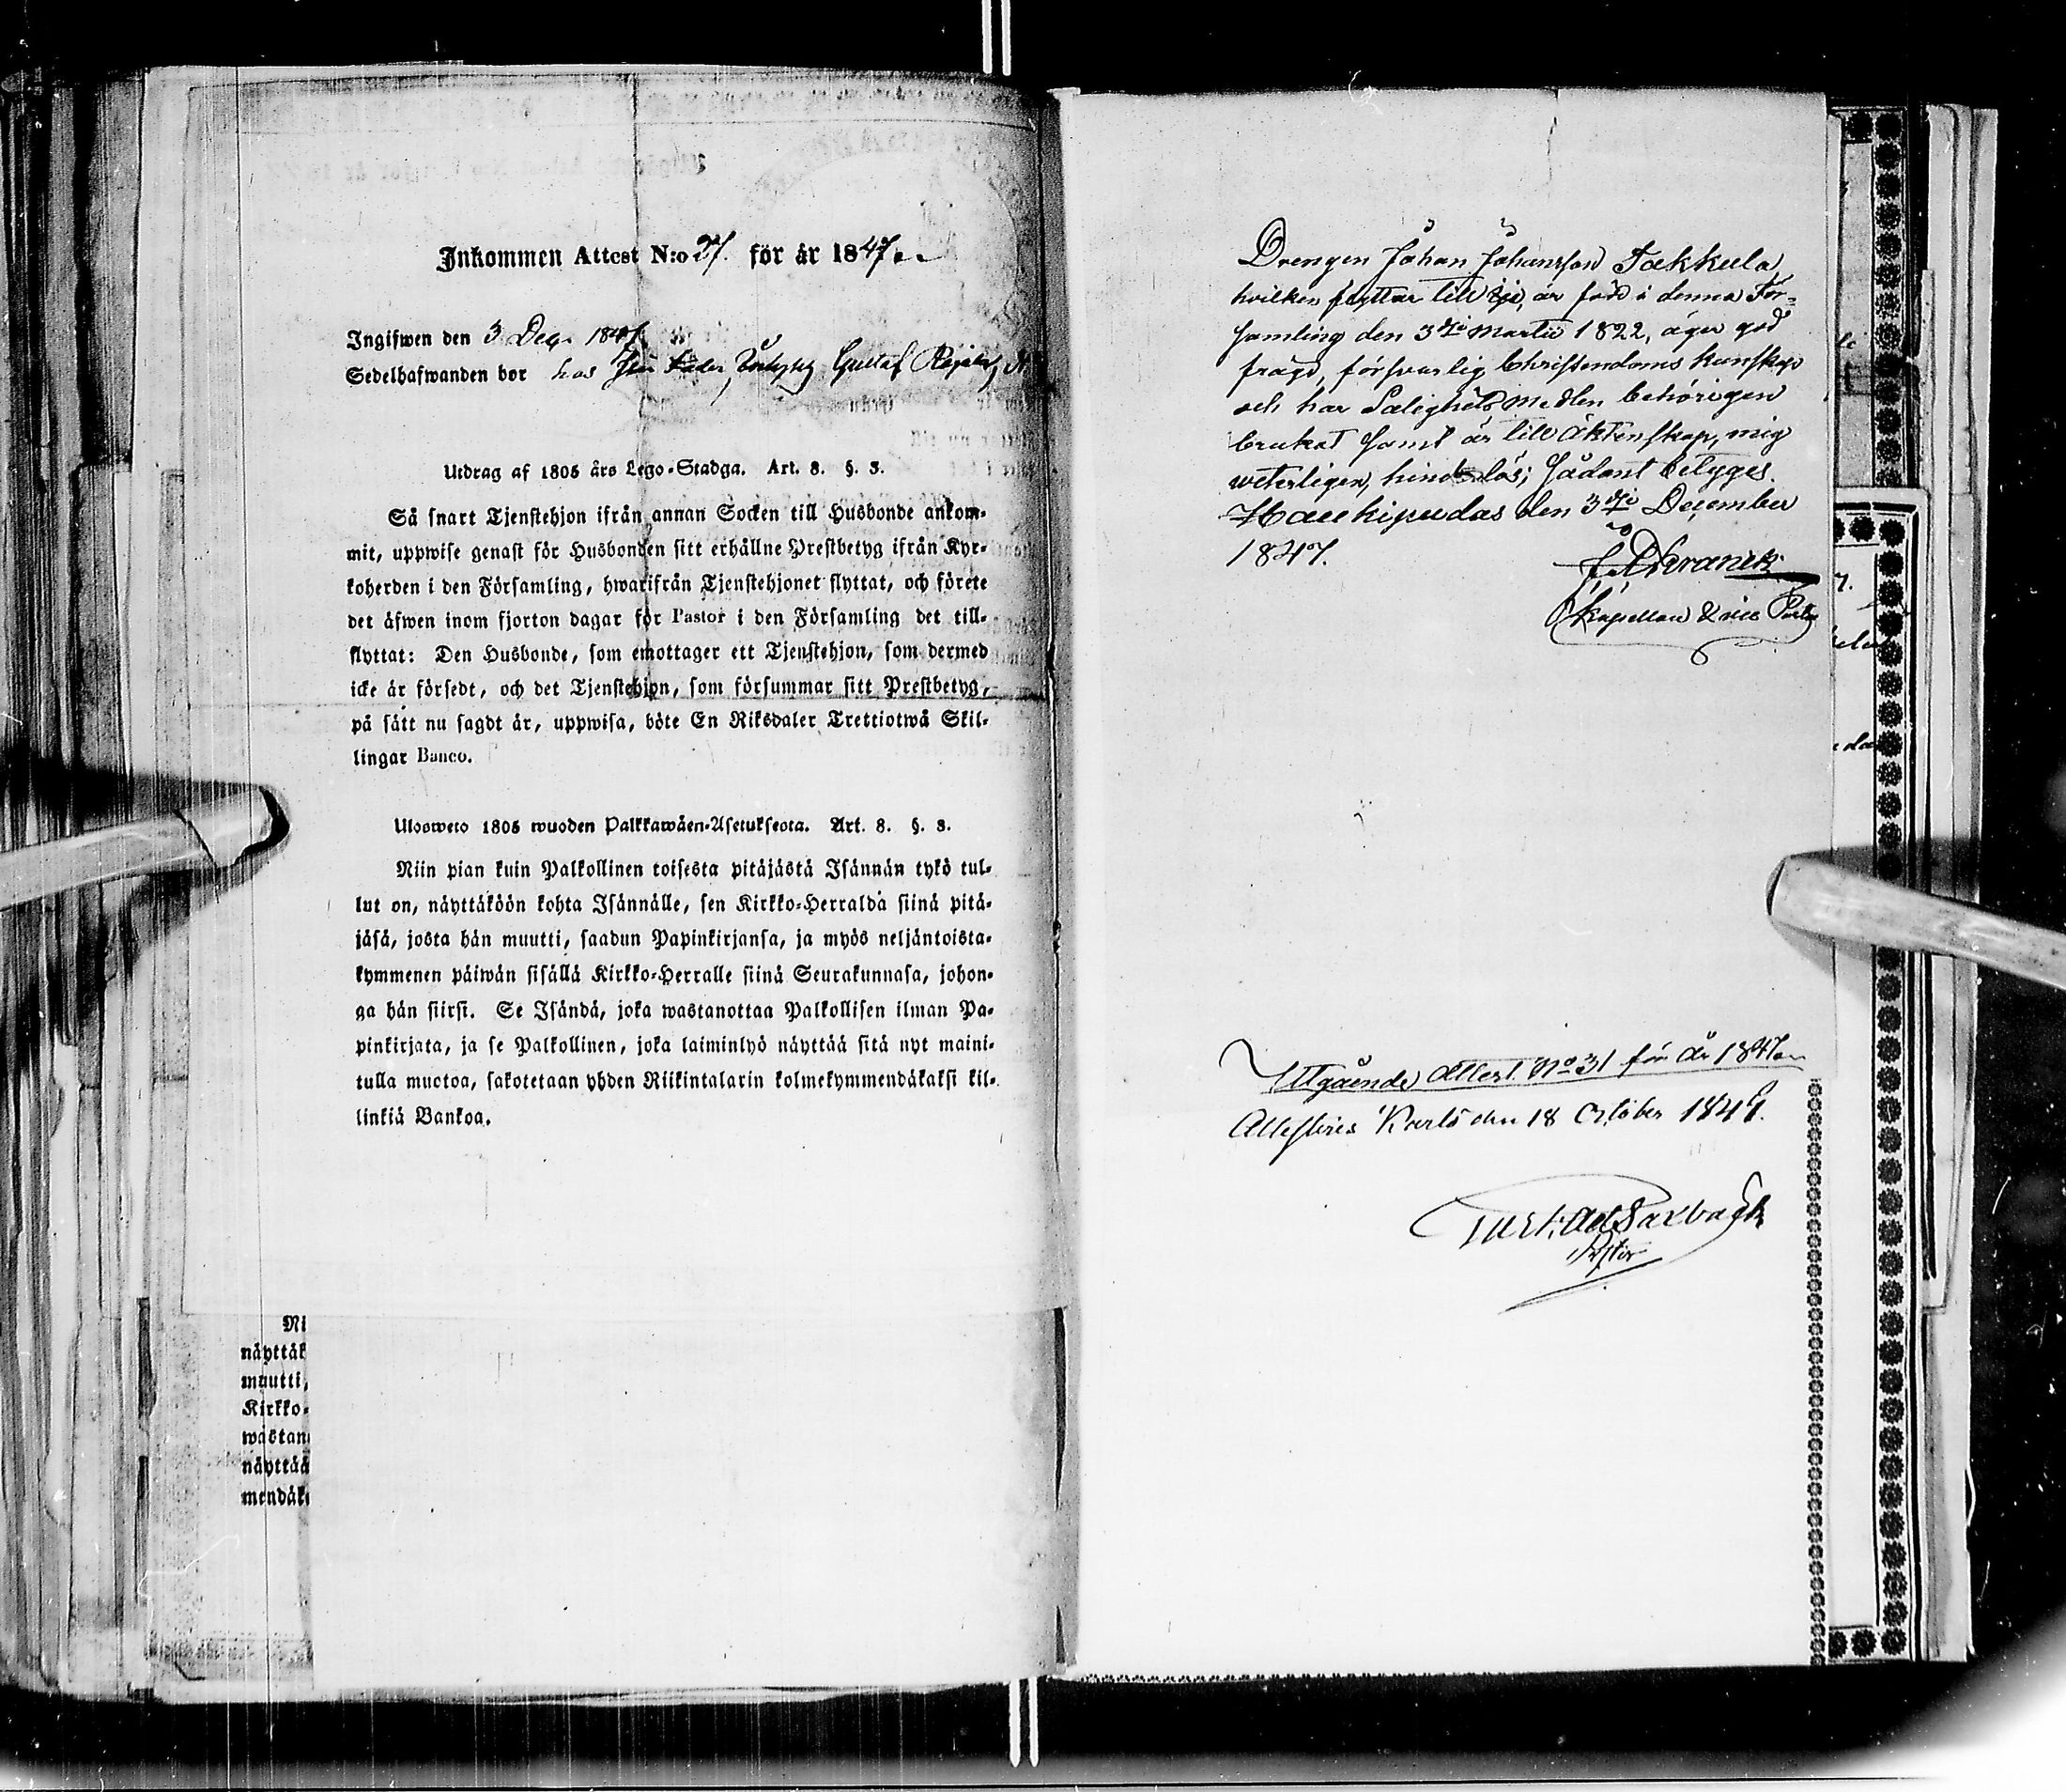 Inkommen Attest N:o 27. för år 1847.
Ingifwen den 3 Dec. 1847
Sedelhafwanden bor hos Gustaf
Utdrag af 1805 års Lego-Stadga. Art. 8. §. 3.
Så snart Tjenstehjon ifrån annan Socken till Husbonde ankom-
mit, uppwise genast för Husbonden sitt erhållne Prestbetyg ifrån Kyr-
koherden i den Församling, hwarifrån Tjenstehjonet flyttat, och förete
det äfwen inom fjorton dagar för Pastor i den Församling det till-
flyttat: Den Husbonde, som emottager ett Tjenstehjon, som dermed
icke är försedt, och det Tjenstehjon, som försummar sitt Prestbetyg,
på sätt nu sagdt är, uppwisa, böte En Riksdaler Trettiotwå Skil-
lingar Banco.
Ulosweto 1805 wuoden Palkkawäen-Asetuksesta. Art. 8. §. 3.
Niin pian kuin Palkollinen toisesta pitäjästä Isännän tykö tul-
lut on, näyttäköön kohta Isännälle, sen Kirkko-Herralda siinä pitä-
jäsä, josta hän muutti, saadun Papinkirjansa, ja myös neljäntoista-
kymmenen päiwän sisällä Kirkko-Herralle siinä Seurakunnasa, johon-
ga hän siirsi. Se Isändä, joka wastanottaa Palkollisen ilman Pa-
pinkirjata, ja se Palkollinen, joka laiminlyö näyttää sitä nyt maini-
tulla muotoa, sakotetaan yhden Riikintalarin kolmekymmendäkaksi kil-
linkiä Bankoa.
Ni
näyttäk
muutti,
Kirkko-
wastan
näyttää
mendäk
Drengen Johan Johansson Takkula,
hvilken flyttar till Ijo, är född i denna För-
samling den 3die Martii 1822, äger god
frägd, försvarlig Christendoms kunskap
och har Salighets medlen behörigen
brukat samt är till äktenskap, mig
veterligen, hinderlös; sådant betyges.
Haukipudas den 3die December
1847.
Kapellan & vice Pastor
Utgående Attest No 31 för år 1847
Attesteras Karlö den 18 October 1847.
Pastor